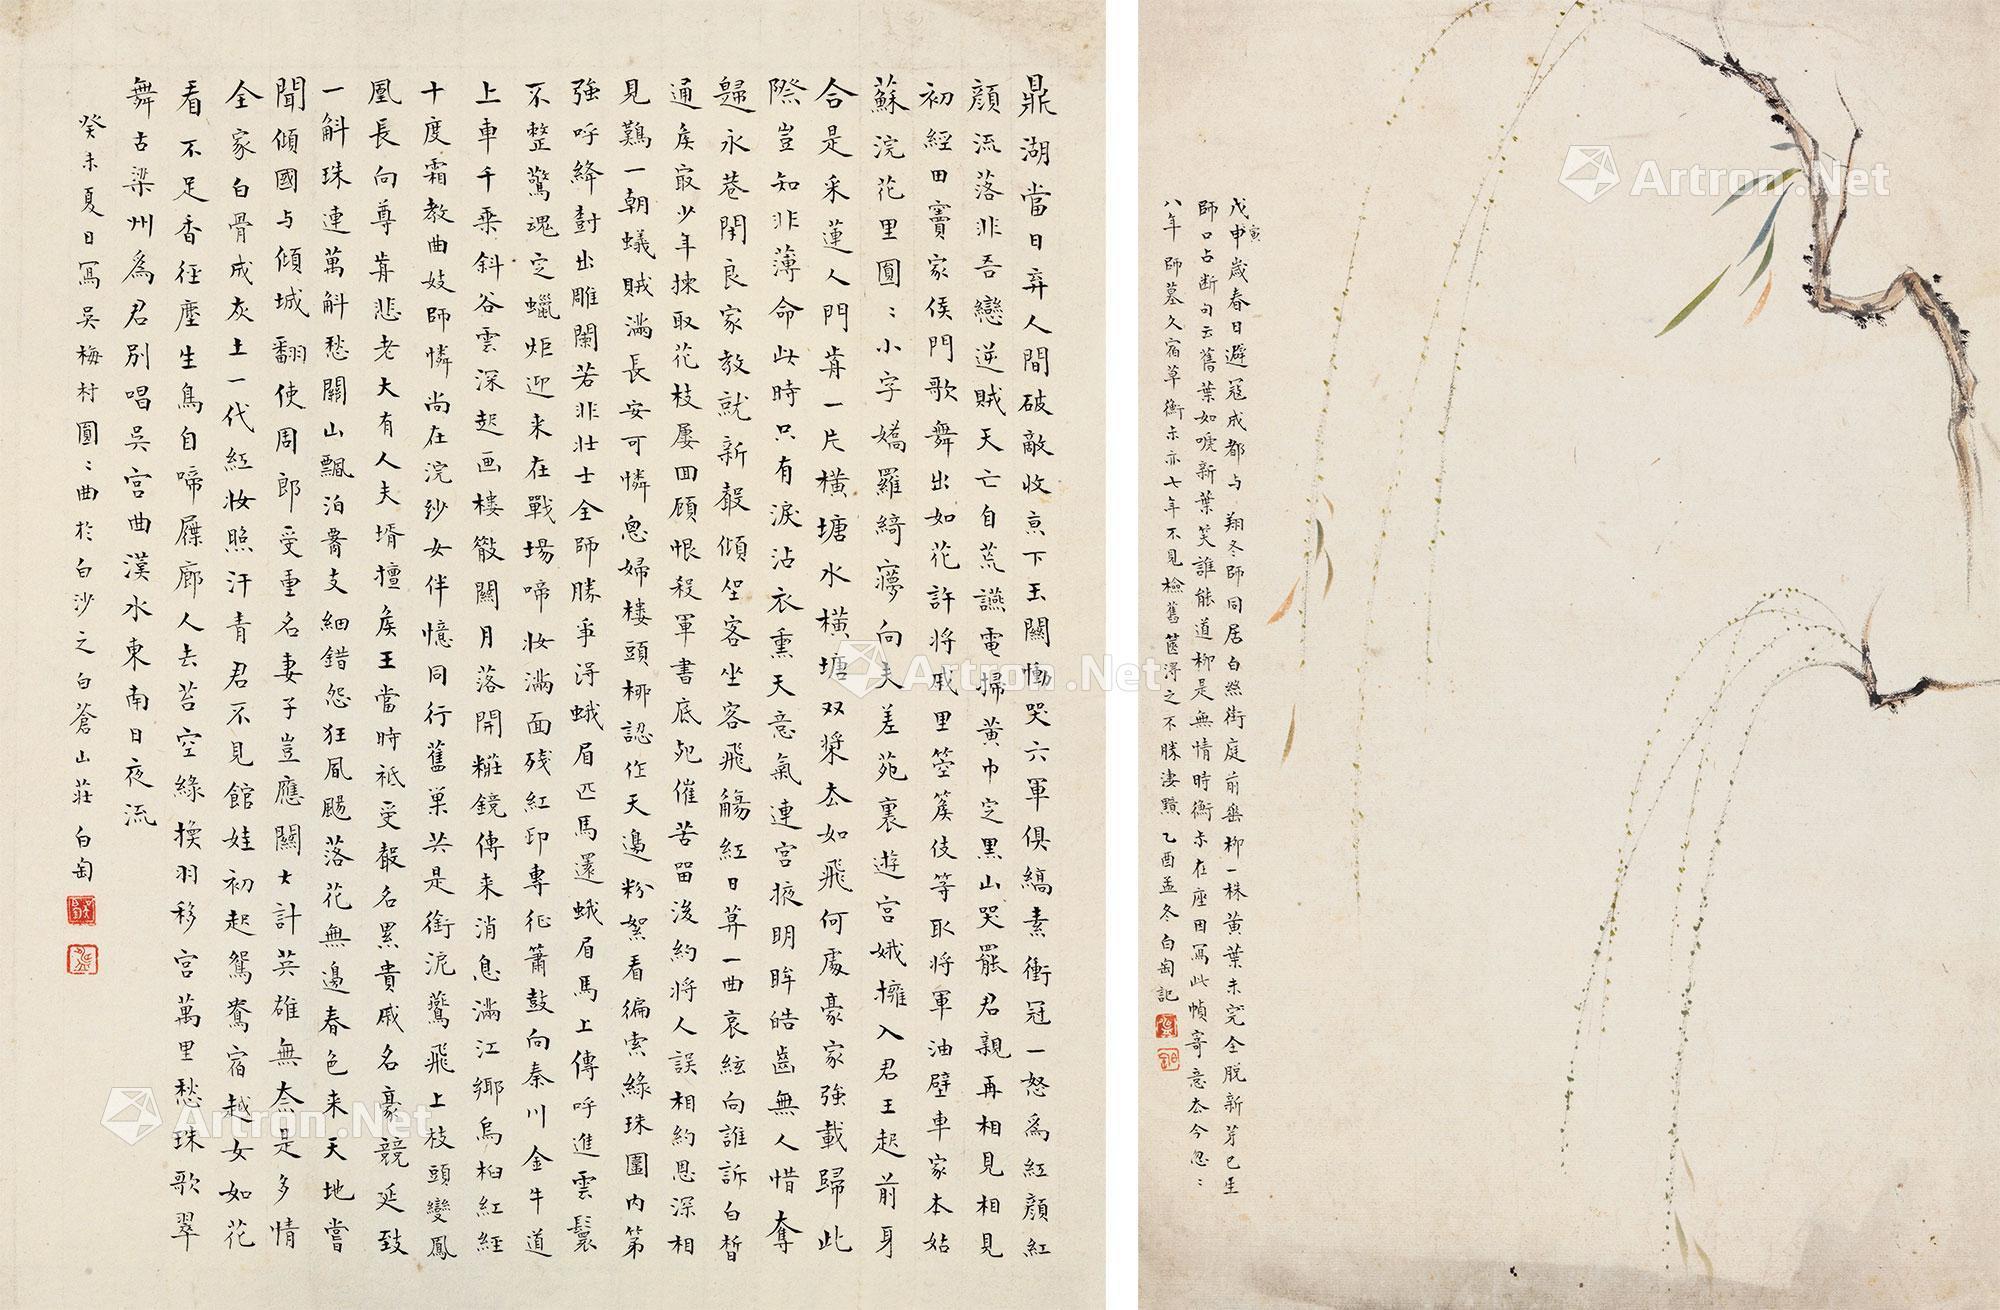 戊申歲春日避寇成都与翔冬師同居白絲街庭前垂柳一株黃葉未完全脫新芽已生
寅
師口占断句云舊葉如唳新葉笑誰能道柳是無情時衡尗在座因寫此幀寄意去今忽〻
八年師墓久宿草衡尗亦七年不見檢舊篋得之不勝淒黯乙酉孟冬白匋記
鼎湖當日弃人間破敵收京下玉關慟哭六軍俱縞素衝冠一怒為紅顏紅
顏流落非吾戀逆賊天亡自荒讌電掃黃巾定黑山哭罷君親再相見相見
初經田竇家侯門歌舞出如花許將戚里箜篌伎等取將軍油壁車家本姑
蘇浣花里圓〻小字嬌羅綺夢向夫差苑裏遊宮娥擁入君王起前身
合是采蓮人門前一片橫塘水橫塘双槳去如飛何處豪家強載歸此
際豈知非薄命此時只有淚沾衣熏天意氣連宮掖明眸皓齒無人惜奪
歸永巷閉良家教就新聲傾坐客坐客飛觴紅日莫一曲哀絃向誰訴白皙
通侯最少年揀取花枝屢回顧恨殺軍書底死催苦留後約將人誤相約恩深相
見難一朝蟻賊滿長安可憐思婦樓頭柳認作天邊粉絮看徧索綠珠圍內第
強呼絳樹出雕闌若非壯士全師勝爭得蛾眉匹馬還蛾眉馬上傳呼進雲鬟
不整驚魂定蠟炬迎來在戰場啼妝滿面殘紅印專征簫鼓向秦川金牛道
上車千乘斜谷雲深起画樓散關月落開妝鏡傳來消息滿江鄉烏桕紅經
十度霜教曲妓師憐尚在浣紗女伴憶同行舊巢共是銜泥燕飛上枝頭變鳳
凰長向尊前悲老大有人夫壻擅侯王當時祇受聲名累貴戚名豪競延致
一斛珠連萬斛愁關山飄泊腰支細錯怨狂風颺落花無邊春色來天地嘗
聞傾國与傾城翻使周郎受重名妻子豈應關大計英雄無奈是多情
全家白骨成灰土一代紅妝照汗青君不見館娃初起鴛鴦宿越女如花
看不足香徑塵生鳥自啼屧廊人去苔空綠換羽移宮萬里愁珠歌翠
舞古梁州為君別唱吳宮曲漢水東南日夜流
癸未夏日寫吳梅村圓〻曲於白沙之白蒼山莊白匋
Artron.Net
Artron.Net
Artron.Net
Artron.Net